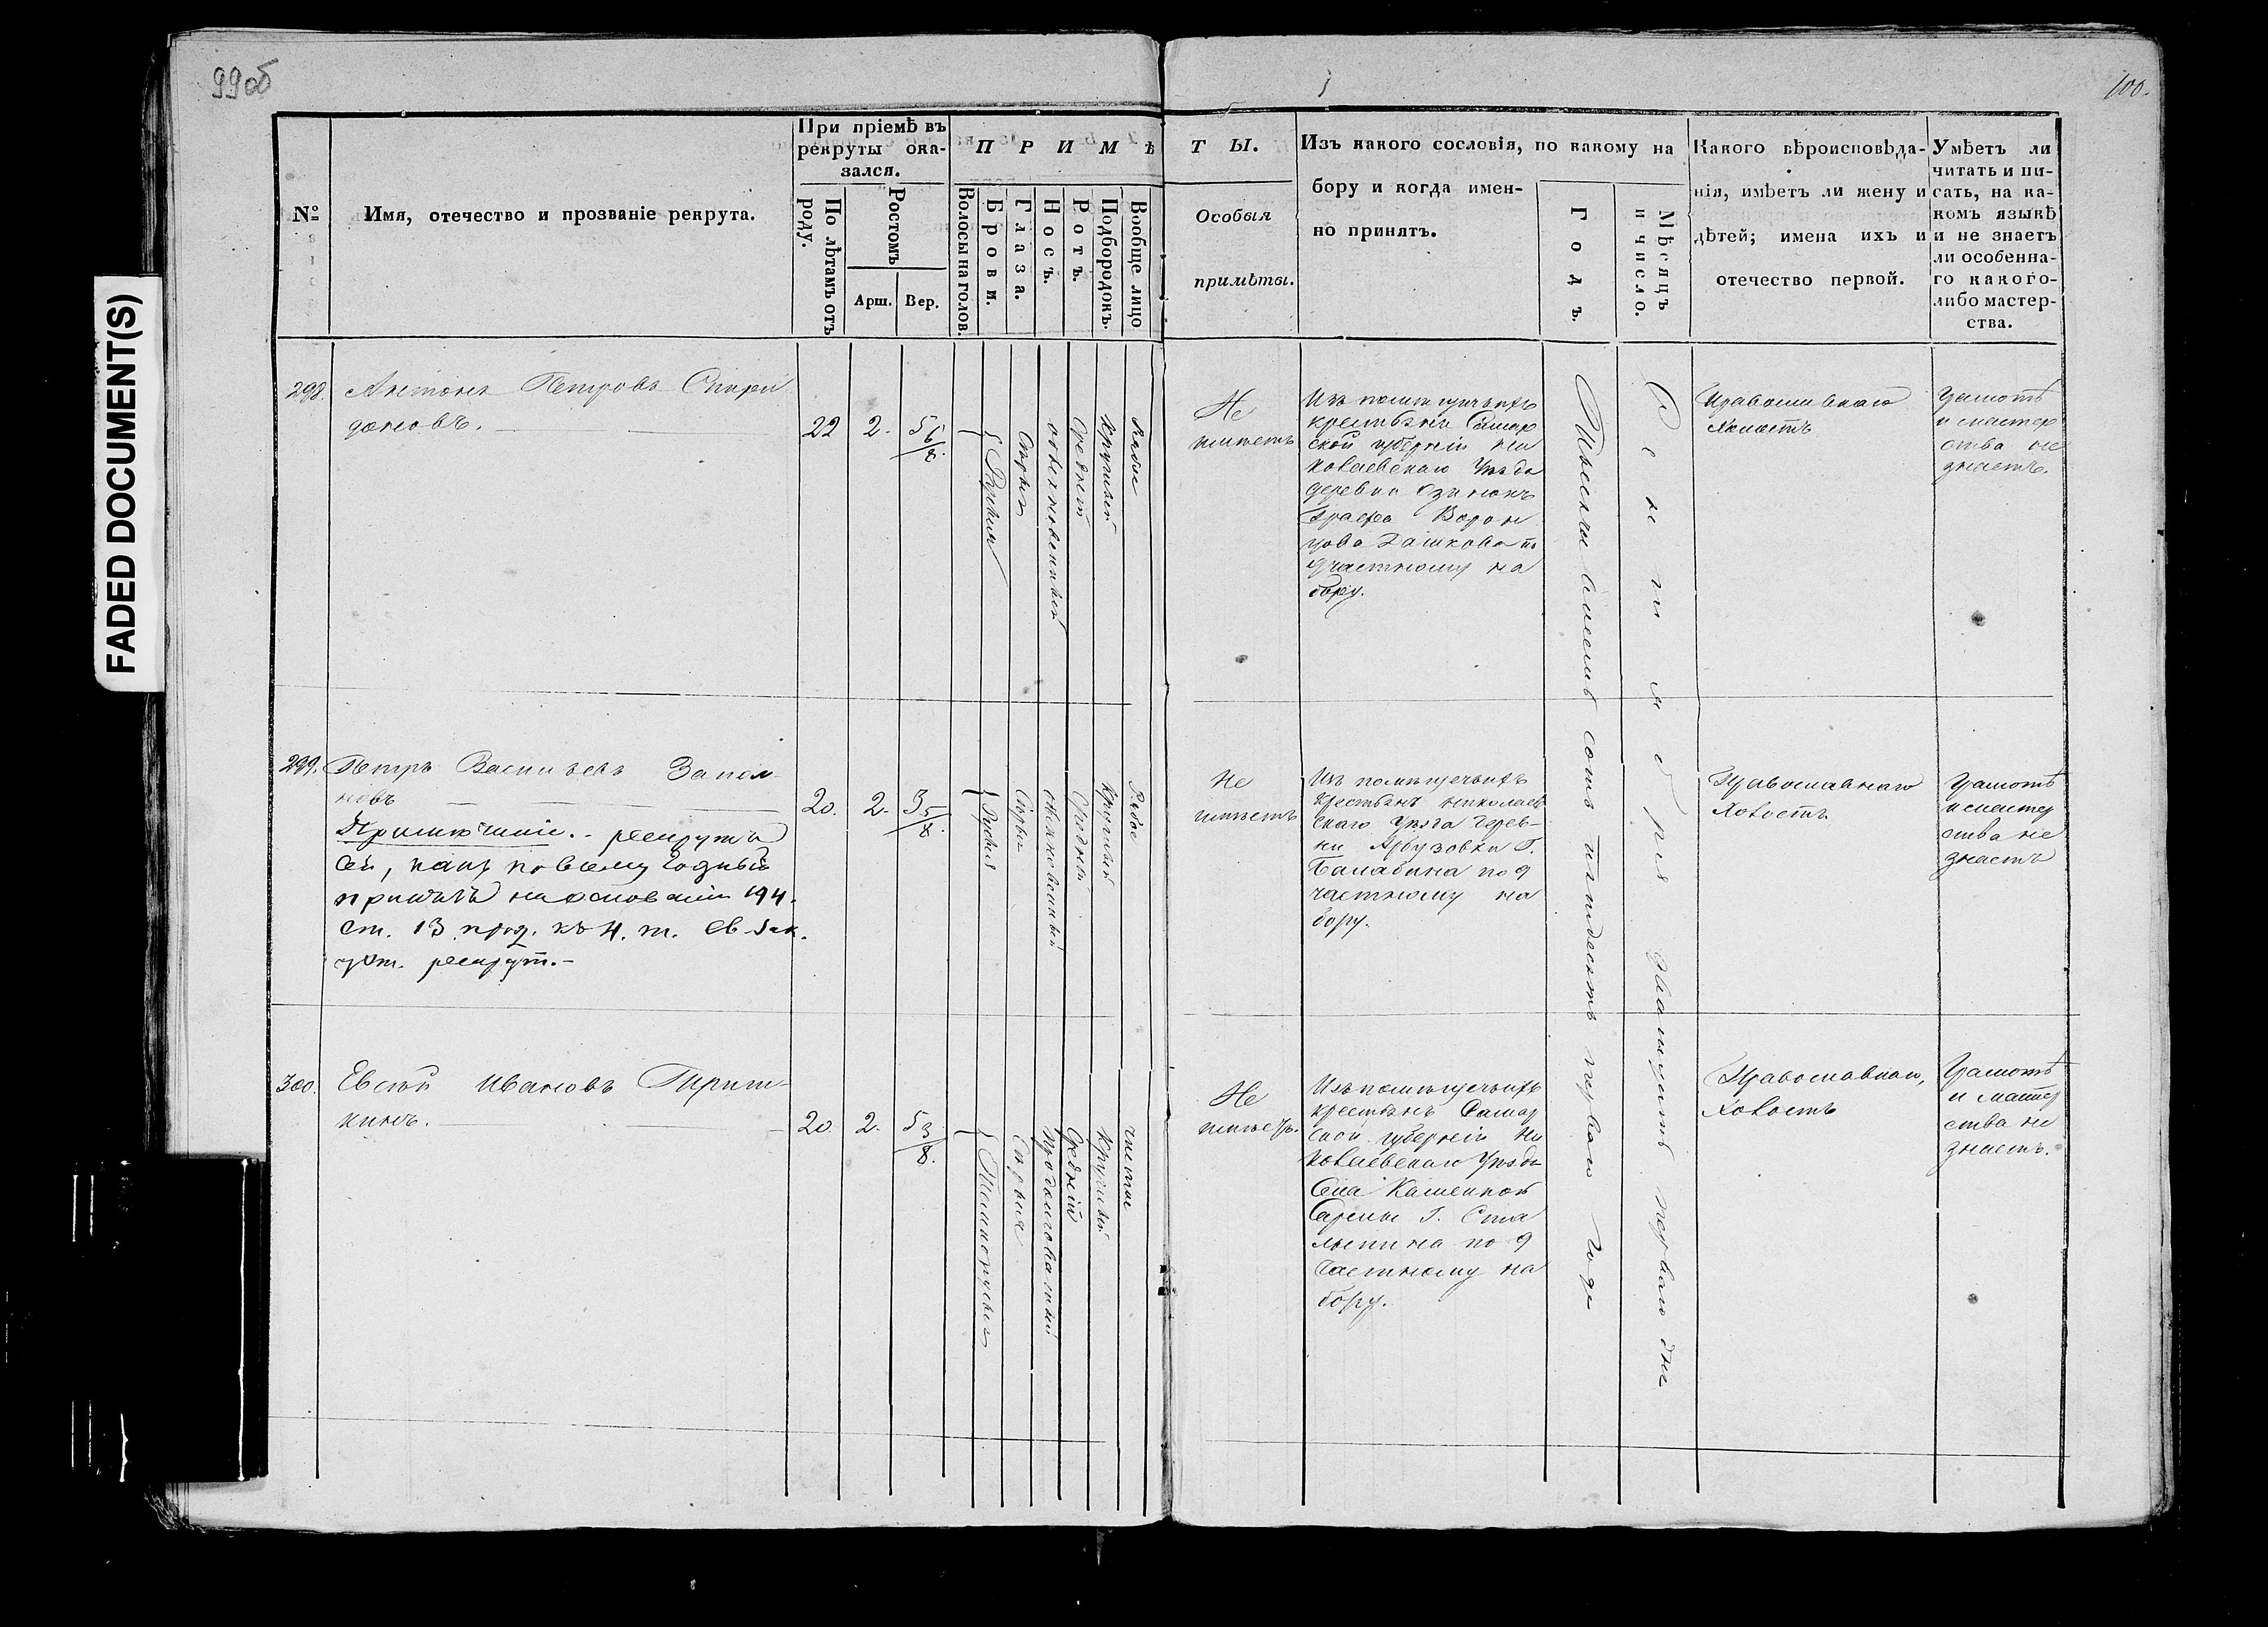 99об
100.
FADED DOCUMENT(S)
№
Имя, отечество и прозваніе рекрута.
При пріемѣ въ
рекруты ока-
зался.
По лѣтамъ отъ
роду.
Ростомъ
Арш.
Вер.
ПРИМѢ
Волосы на голов.
Брови.
Глаза.
Носъ.
Ротъ.
Подбородокъ.
Вообще лицо
ТЫ.
Особыя
примѣты.
Изъ какого сословія, по какому на
бору и когда имен-
но принятъ.
Годъ.
Мѣсяцъ
и число.
Какого вѣроисповѣда-
нія, имѣетъ ли жену и
дѣтей; имена ихъ и
отечество первой.
Умѣетъ ли
читать и пи-
сать, на ка-
комъ языкѣ
и не знаетъ
ли особенна-
го какого-
либо мастер-
ства.
298.
Антонъ Петровъ Спири
доновъ.
22
2.
5 6/8.
Русыя
Сѣрыя
обыкновенный
Средній
Круглый
Рябое
Не
имѣетъ
Изъ помѣщичьихъ
крестьянъ Самар
ской губерніи Ни
колаевскаго Уѣзда
деревни Озинокъ
Графа Ворон
цова Дашкова по
9 частному на
бору.
Тысяча восемь сотъ пятьдесятъ перваго года
Сентября двадцать перваго дня
Православнаго
Холостъ
Грамотѣ
и мастер
ства не
знаетъ.
299.
Петръ Васильевъ Запол
новъ
Примѣчаніе. - рекрутъ
сей, какъ по всему годный
принятъ на основаніи 194.
ст. 13 прод. къ 4. т. Св. Зак.
уст. рекрут.-
20.
2.
3 5/8.
Русыя
Сѣрые
Обыкновенный
Средній
Круглый
Рябое
Не
имѣетъ
Изъ помѣщичьихъ
крестьянъ Николаев
скаго Уѣзда дерев-
ни Арбузовки Г.
Балабина по 9
частному на
бору.
Православнаго
Холостъ
Грамотѣ
и мастер
ства не
знаетъ
300.
Евсей Ивановъ Гириш-
кинъ.
20.
2.
5 3/8.
Темнорусыя
Сѣрыя
продолговатый
Средній
Круглый
чистое
Не
имѣетъ.
Изъ помѣщичьихъ
крестьянъ Самар
ской губерніи Ни
колаевскаго Уѣзда
Села Каменной
Сармы Г. Сто
лыпина по 9
частному на
бору.
Православнаго,
Холостъ
Грамотѣ
и мастер
ства не
знаетъ.